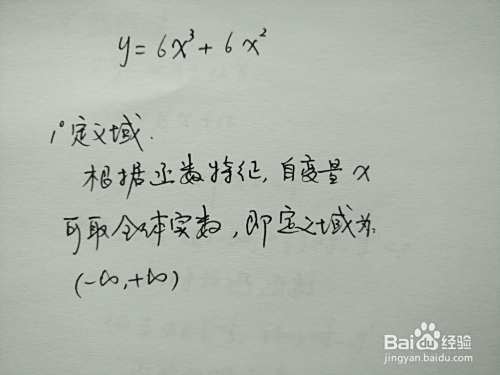 y=6x³+6x²
1°定义域.
根据函数特征,自变量x
可取全体实数,即定义域为:
(-∞,+∞)
Baidu经验
jingyan.baidu.com